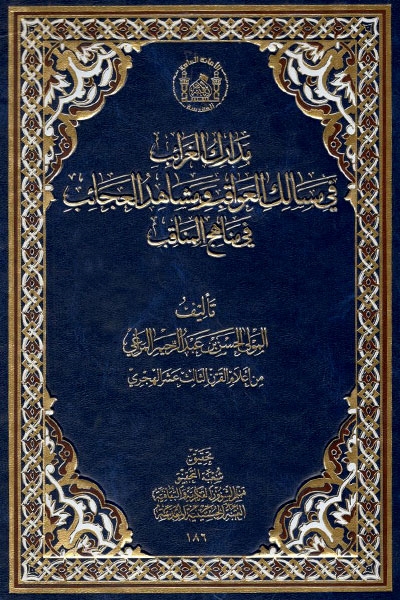 الأمانة العامة
المقدسة
مدارك الغرائب
في مسالك العواقب ومشاهد العجائب
في مناهج المناقب
تأليف
المولى الحسن بن عبد الرحيم المراغي
من أعلام القرن الثالث عشر الهجري
تحقيق
شعبة التحقيق
قسم الشؤون الفكرية والثقافية
العتبة الحسينية المقدسة
١٨٦